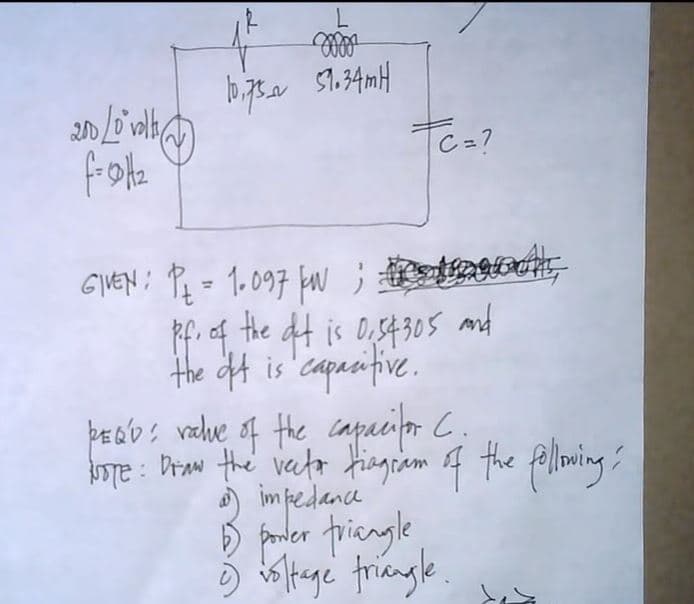 R L
10.75Ω 59.34mH
200 ∠0° volts
C = ?
f = 50Hz
GIVEN : Pt = 1.097 kW ;
p.f. of the ckt is 0.54305 and
the ckt is capacitive.
REQ'D : value of the capacitor C.
NOTE : Draw the vector diagram of the following :
a) impedance
b) power triangle
c) voltage triangle.